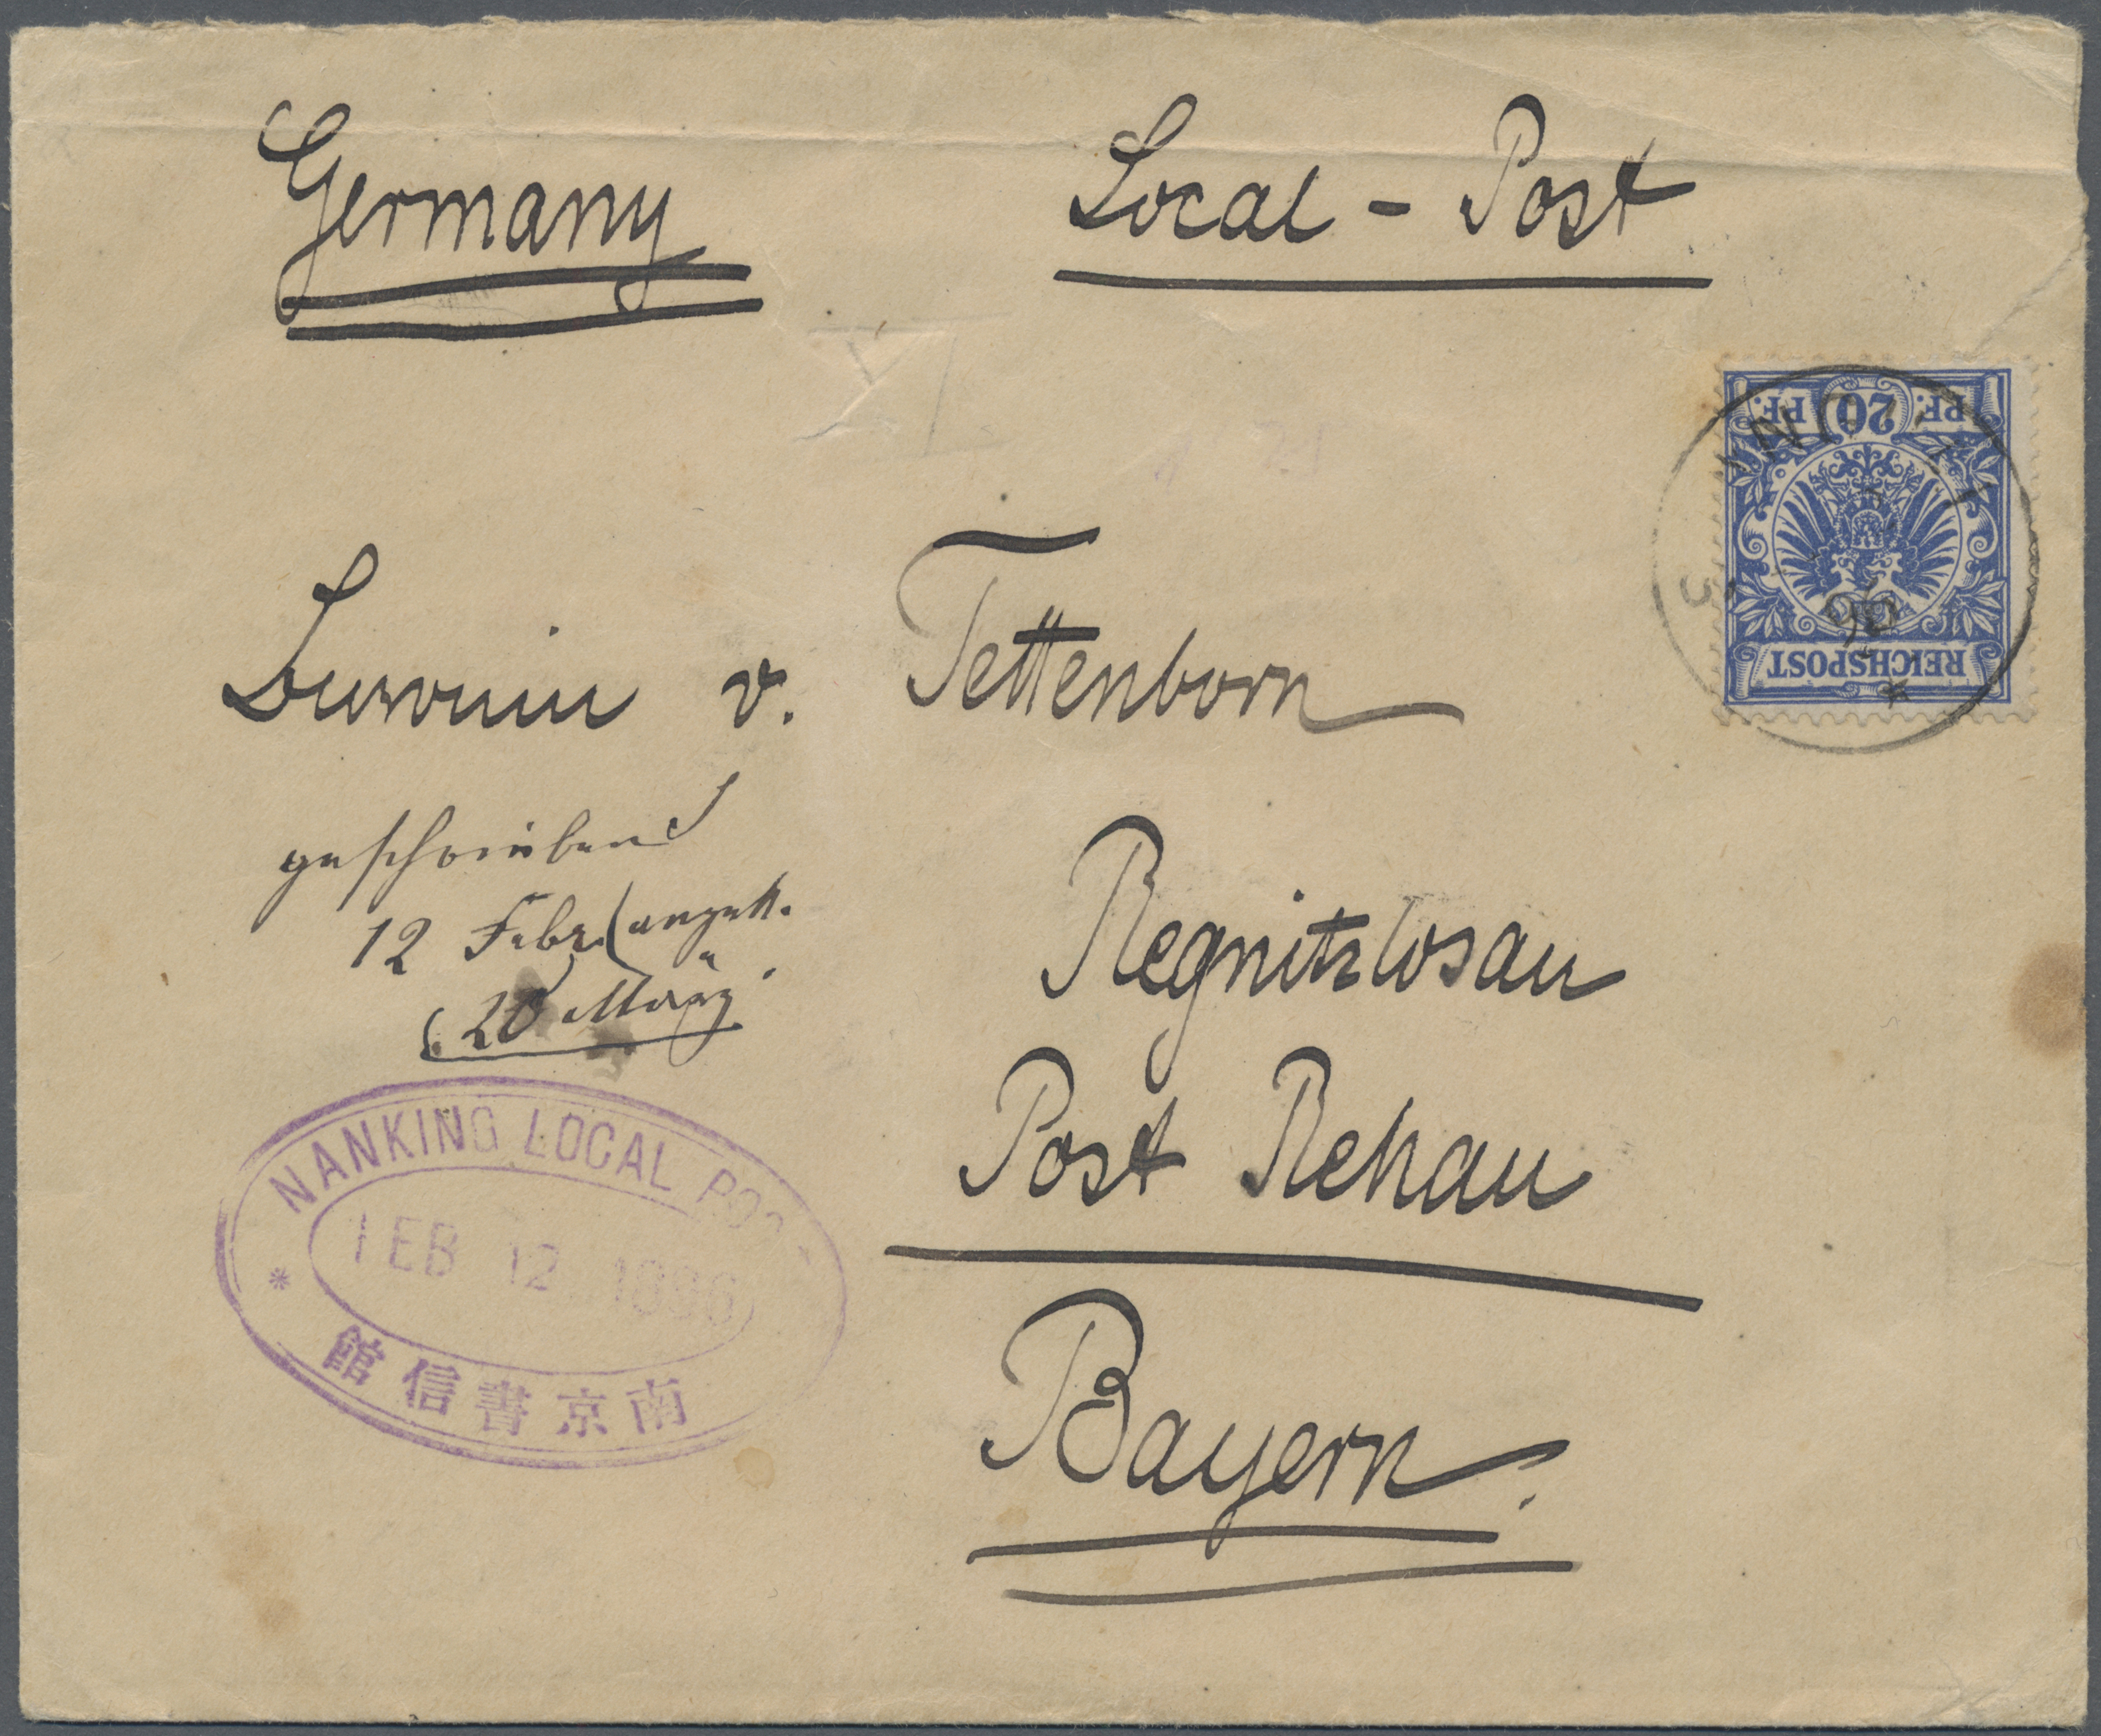 Germany
Local - Post
PF. 20 PF.
REICHSPOST
v. Tettenborn
geschrieben
12 Febr. angek.
20 März
Regnitzlosau
Post Rehau
Bayern.
NANKING LOCAL POST
FEB 12 1896
館信書京南